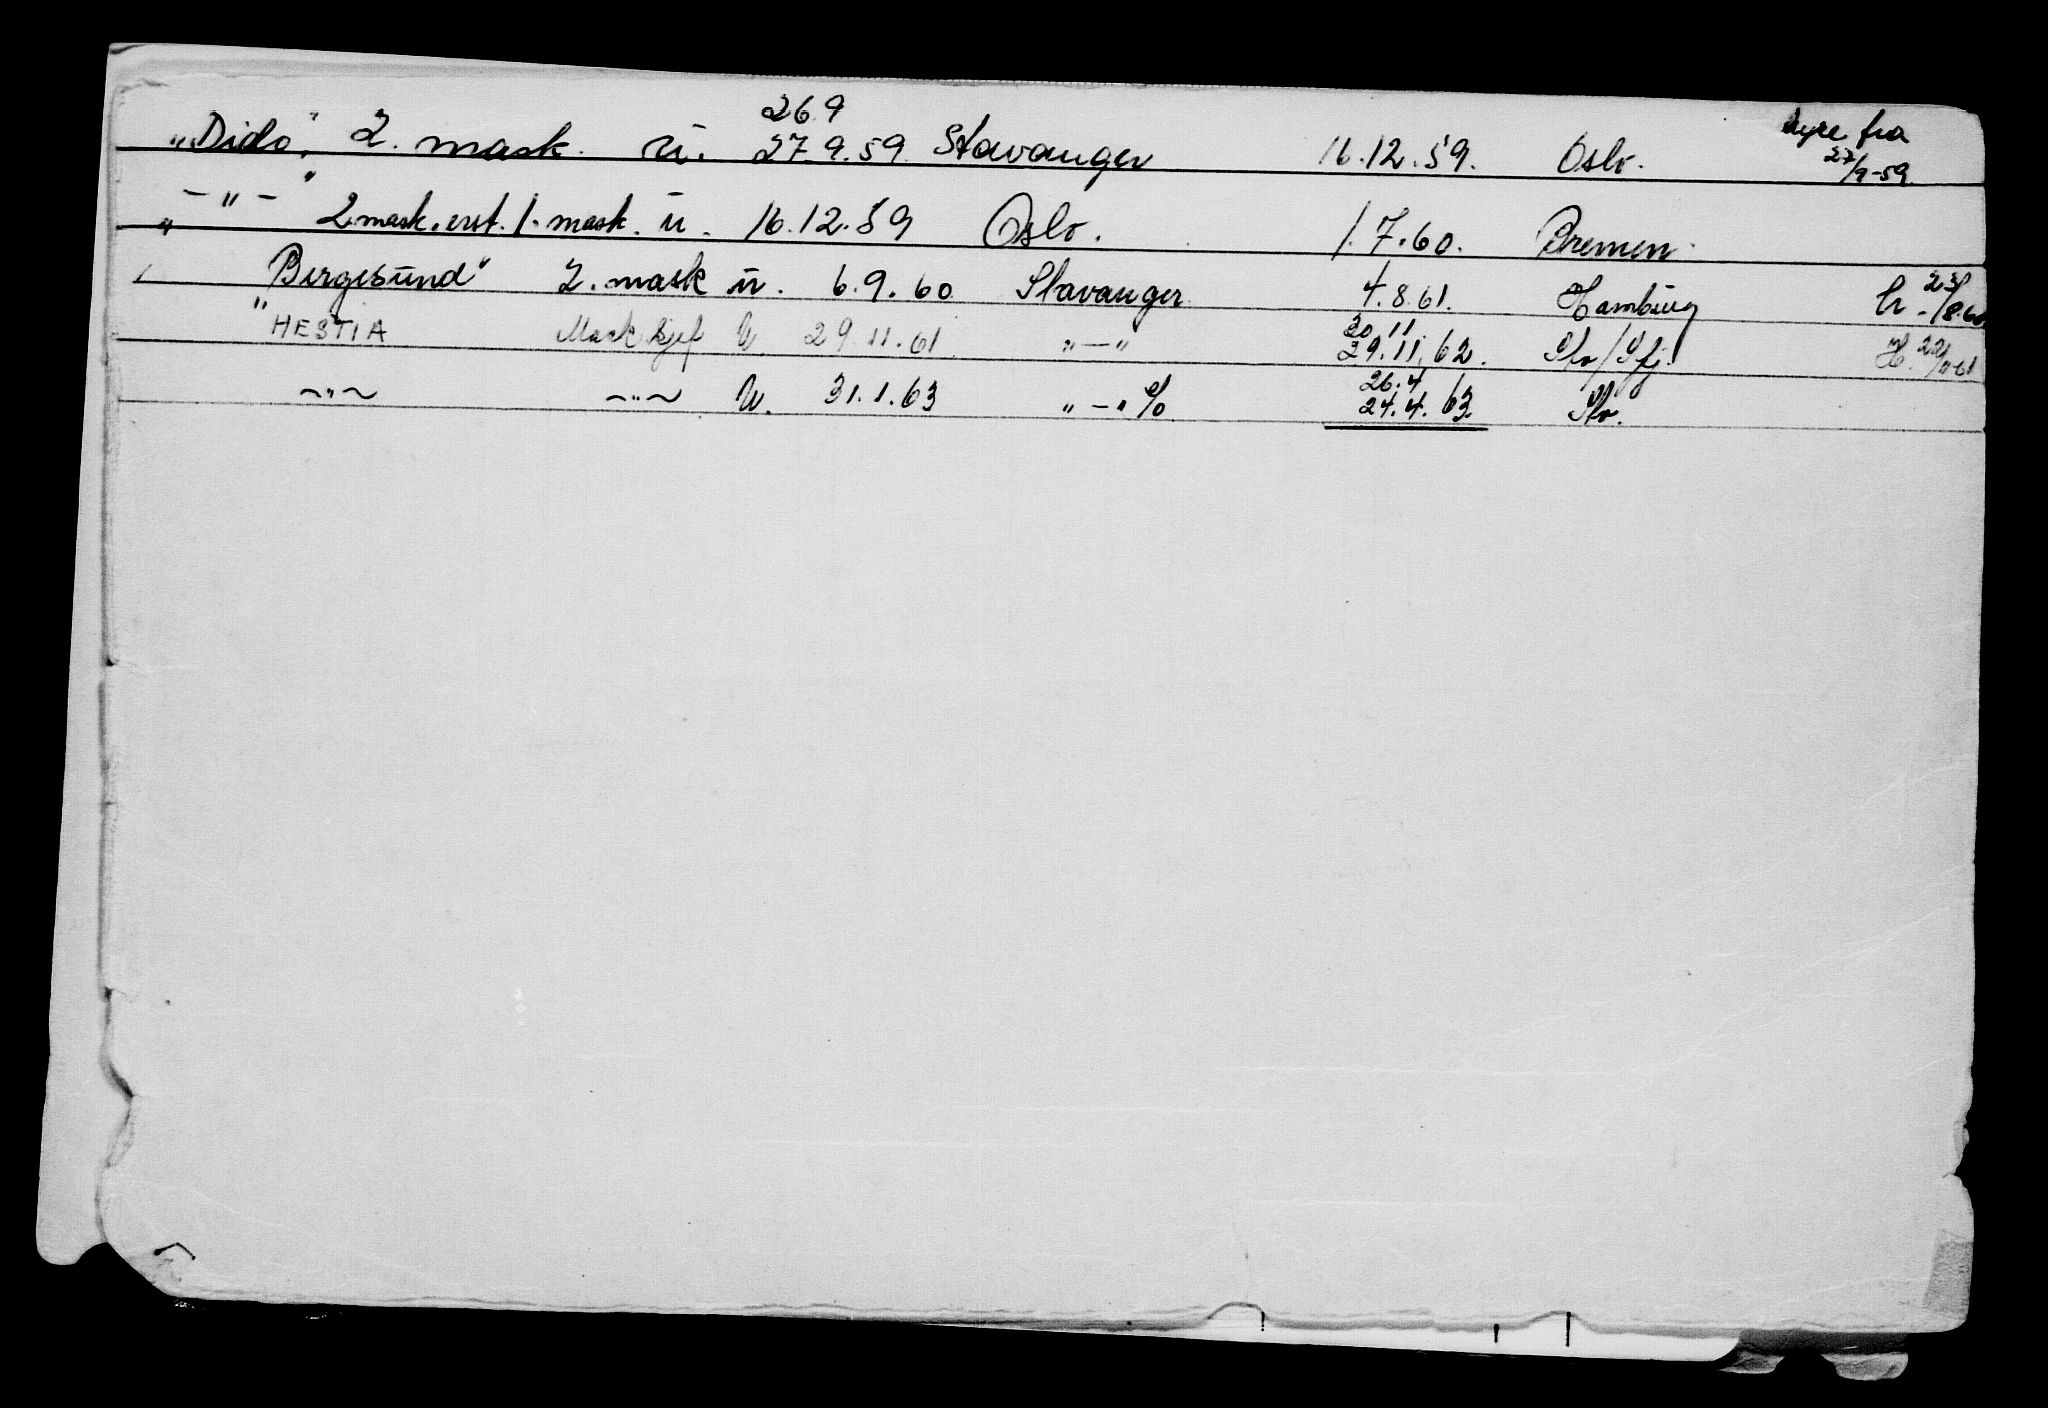 26 9 hyre fra
„Dido", 2. mask. u. 27.9.59 Stavanger 16.12.59. Oslo. 27/9-59
-"- 2 mask. erst. 1. mask. u. 16.12.59 Oslo. 1.7.60. Bremen.
„Bergesund" 2. mask u. 6.9.60 Stavanger 4.8.61. Hamburg h. 23/8.60
30 11
"HESTIA Mask sjef U. 29.11.61 „-" 29.11.62. Stv/Sfj. H. 22/11-61
26.4
~"~ ~"~ U. 31.1.63 „-" S/o 24.4.63 Stv.